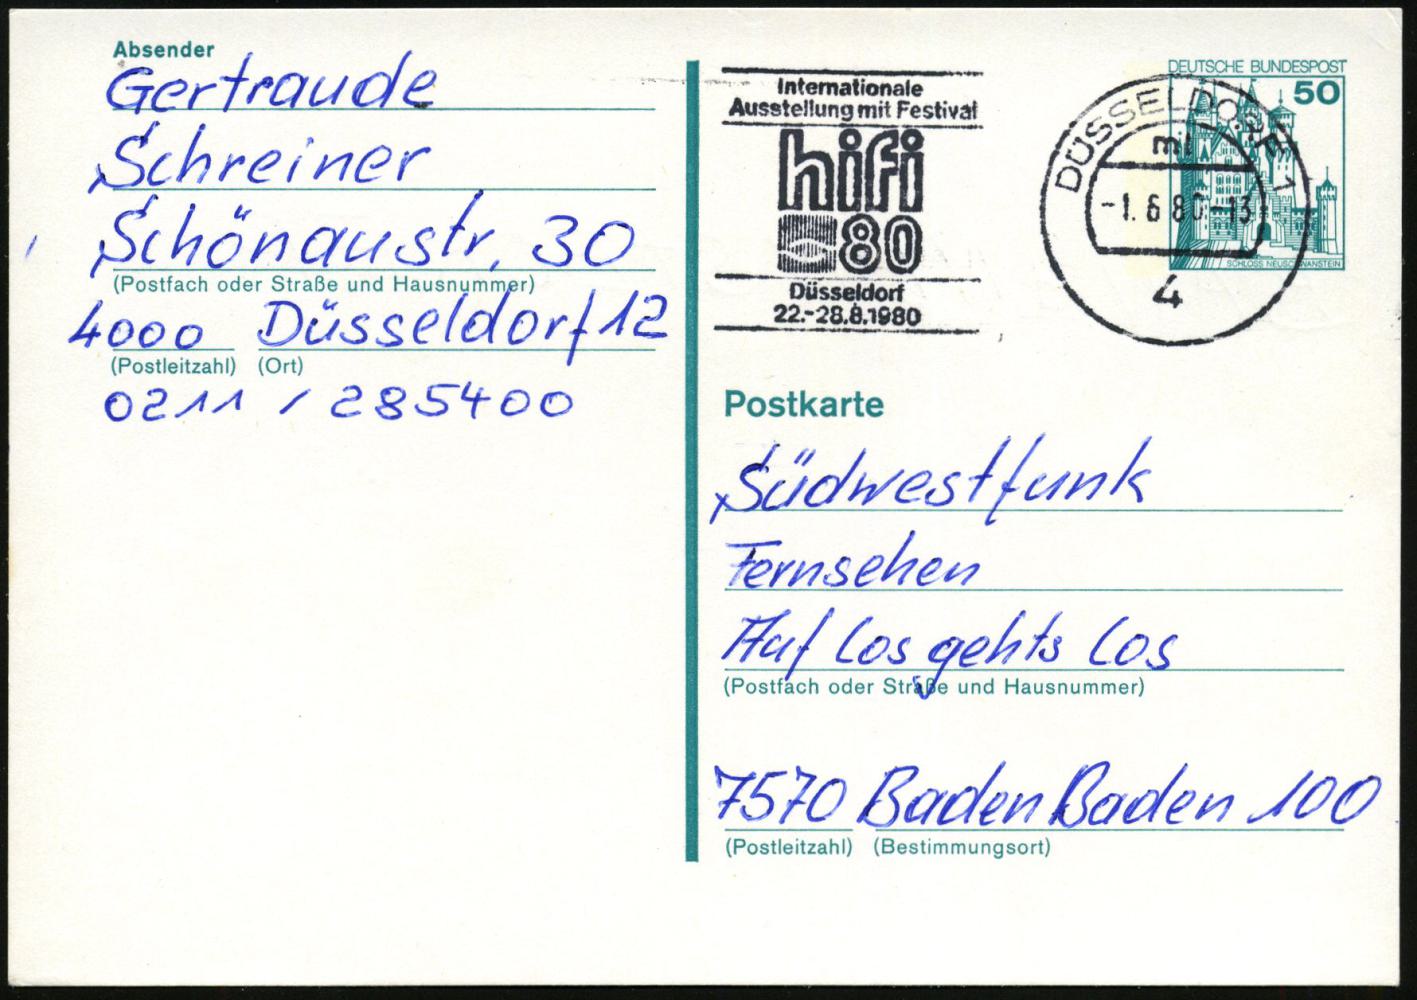 Absender
Gertraude
Schreiner
Schönaustr. 30
(Postfach oder Straße und Hausnummer)
4000 Düsseldorf 12
(Postleitzahl) (Ort)
0211 / 285400
Internationale
Ausstellung mit Festival
hifi
80
Düsseldorf
22.-28.8.1980
DÜSSELDORF 1
ml
-1.6.80-13
4
DEUTSCHE BUNDESPOST
50
SCHLOSS NEUSCHWANSTEIN
Postkarte
Südwestfunk
Fernsehen
Auf Los gehts Los
(Postfach oder Straße und Hausnummer)
7570 Baden Baden 100
(Postleitzahl) (Bestimmungsort)